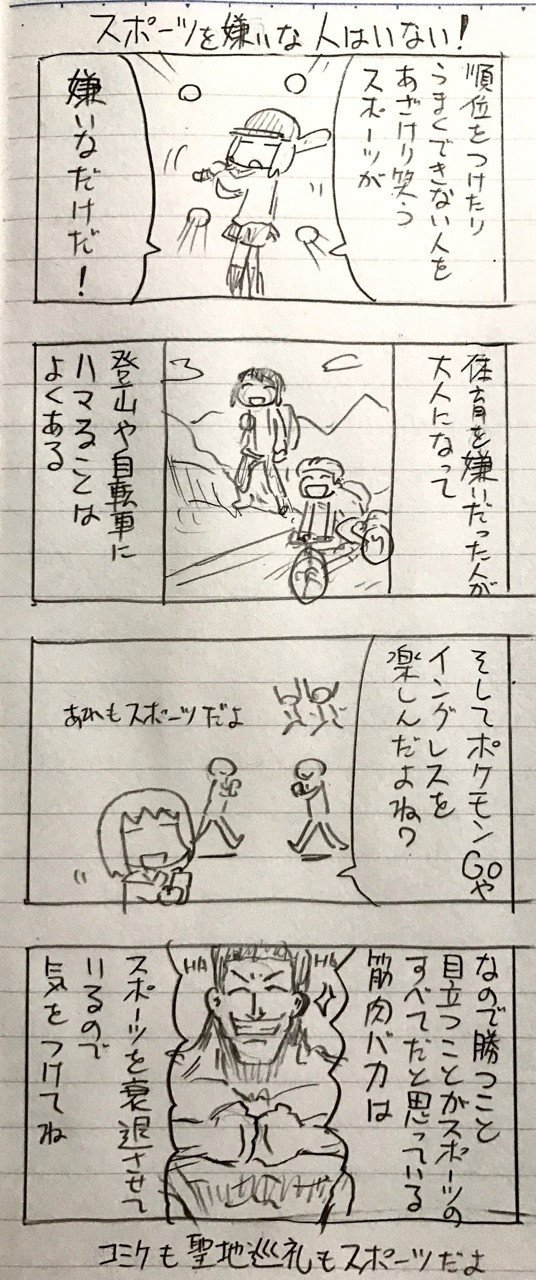 スポーツを嫌いな人はいない!
順位をつけたり
うまくできない人を
あざけり笑う
スポーツが
嫌いなだけだ!
体育を嫌いだった人が
大人になって
登山や自転車に
ハマることは
よくある
そしてポケモンGoや
イングレスを
楽しんだよね?
あれもスポーツだよ
なので勝つこと
目立つことがスポーツの
すべてだと思っている
筋肉バカは
HA
HA
スポーツを衰退させて
いるので
気をつけてね
コミケも聖地巡礼もスポーツだよ